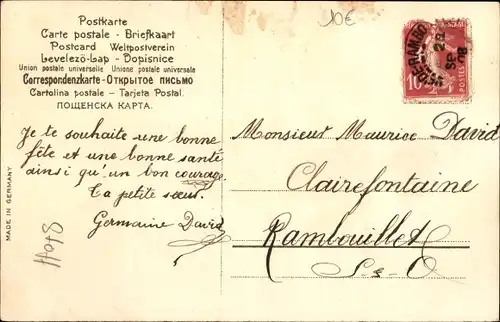 Postkarte
Carte postale - Briefkaart
Postcard Weltpostverein
Levelező-Lap - Dopisnice
Union postale universelle Unione postale universale
Correspondenzkarte - Открытое письмо
Cartolina postale - Tarjeta Postal.
ПОЩЕНСКА КАРТА.
10€
Je te souhaite une bonne
fête et une bonne santé
ainsi qu'un bon courage.
Ta petite sœur.
Germaine David
MADE IN GERMANY
Monsieur Maurice David
Clairefontaine
Rambouillet
S-&-O
22
SP
08
10
POSTES